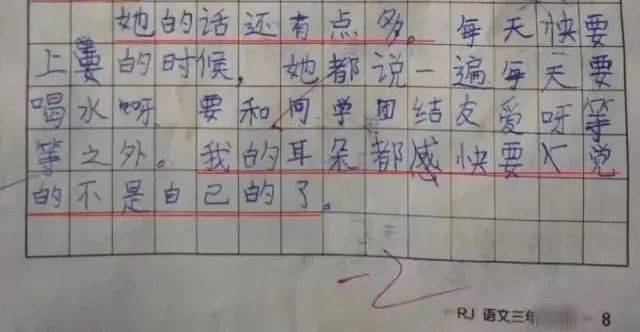 她的话还有点多。每天快要
上的时候，她都说一遍每天要
喝水呀 要和同学团结友爱呀等
等之外。我的耳朵都感快要觉
的不是自己的了。
-2
RJ 语文三年 8